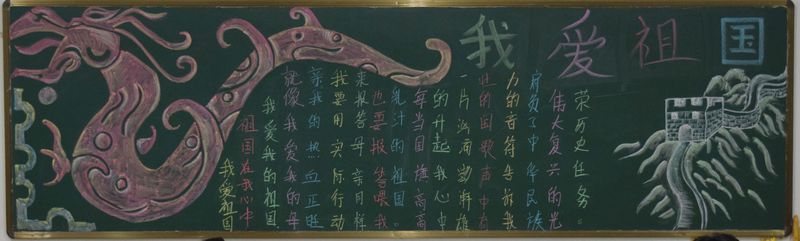 我爱祖国
我爱祖国
祖国在我心中
我爱我的祖国
就像我爱我的母
亲我的热血正旺
我要用实际行动
来报答母亲同样
也要报答喂我
乳汁的祖国。
每当国旗高高
的升起我心中
一片汹涌澎湃雄
壮的国歌声中有
力的音符告诉我
肩负了中华民族
伟大复兴的光
荣历史任务。